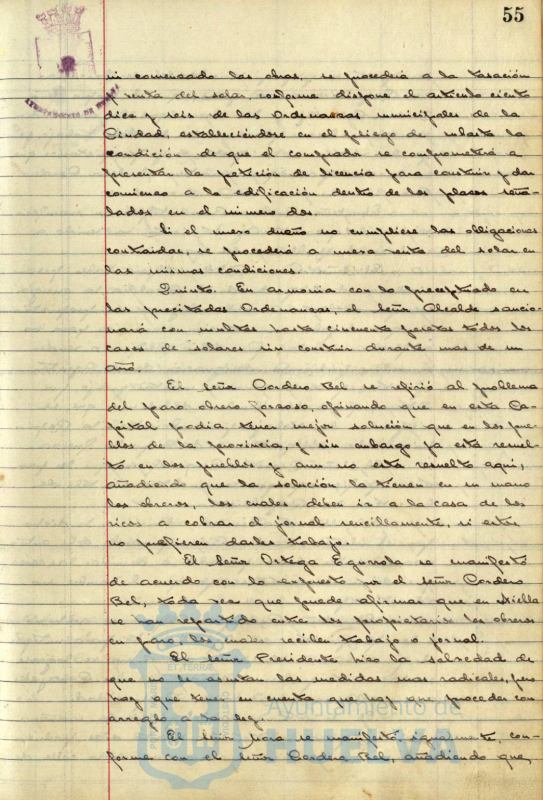 55
ni comenzado las obras, se procederá a la tasación
y venta del solar, conforme dispone el artículo ciento
diez y seis de las Ordenanzas municipales de la
Ciudad, estableciéndose en el pliego de subasta la
condición de que el comprador se comprometerá a
presentar la petición de licencia para construir y dar
comienzo a la edificación dentro de los plazos seña-
lados en el número dos.
Si el nuevo dueño no cumpliese las obligaciones
contraidas, se procederá a nueva venta del solar en
las mismas condiciones.
Quinto. En armonía con lo preceptuado en
las precitadas Ordenanzas, el Señor Alcalde sancio-
nará con multas hasta cincuenta pesetas todos los
casos de solares sin construir durante mas de un
año.
El Señor Cordero Bel se refirió al problema
del paro obrero forzoso, opinando que en esta Ca-
pital podia tener mejor solución que en los pue-
blos de la provincia, y sin embargo ya está resuel-
to en los pueblos y aun no está resuelto aquí,
añadiendo que la solución la tienen en su mano
los obreros, los cuales deben ir a la casa de los
ricos a cobrar el jornal sencillamente, si estos
no prefieren darles trabajo.
El Señor Ortega Egurrola se manifestó
de acuerdo con lo expuesto por el señor Cordero
Bel, toda vez que puede afirmar que en
se han repartido entre los propietarios los obreros
en paro, los cuales reciben trabajo o jornal.
El Señor Presidente hizo la salvedad de
que no le asustan las medidas mas radicales, pero
hay que tener en cuenta que hay que proceder con
arreglo a la ley.
El Señor se manifestó, igualmente, con-
forme con el Señor Cordero Bel, añadiendo que,
Ayuntamiento de
HUELVA